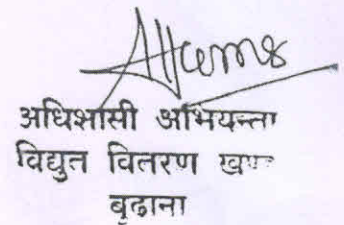 अधिशासी अभियन्ता
विद्युत वितरण खण्ड
बुढाना